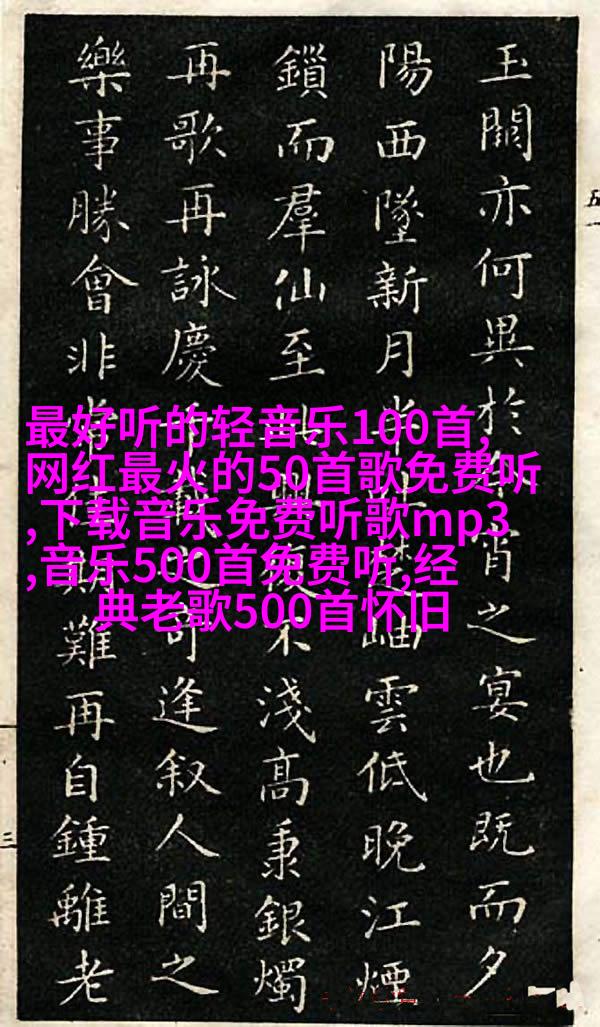 玉闕亦何異於宵之宴也既而夕
陽西墜新月半岫雲低晚江煙
鎖而羣仙至興不淺高秉銀燭
再歌再詠慶千載之可逢叙人間之
樂事勝會非常難再自鍾離老
最好听的轻音乐100首,
网红最火的50首歌免费听
,下载音乐免费听歌mp3
,音乐500首免费听,经
典老歌500首怀旧
五一
三